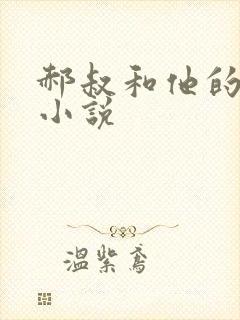 郝叔和他的
小说
温紫鸢